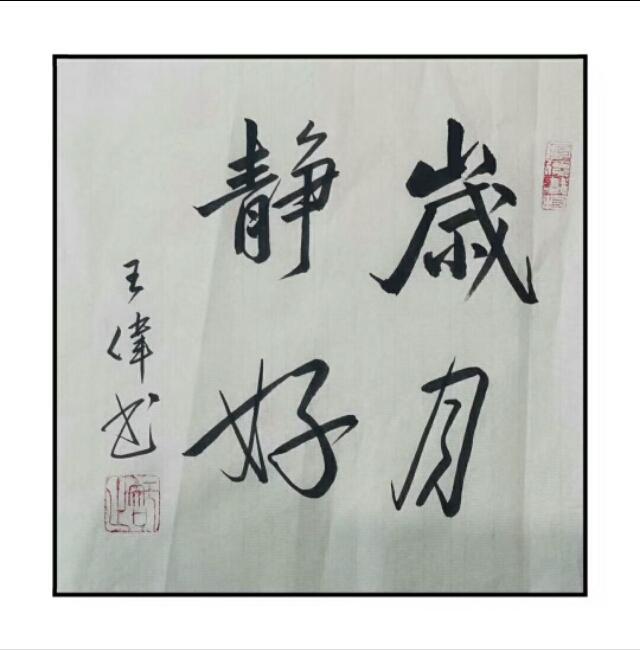 歲月
静好
王偉书